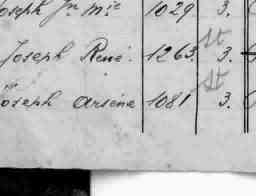 Joseph Jr. Mic 1029 3.
Joseph René. 1263. St 3.
Joseph Arsène 1081 St 3.